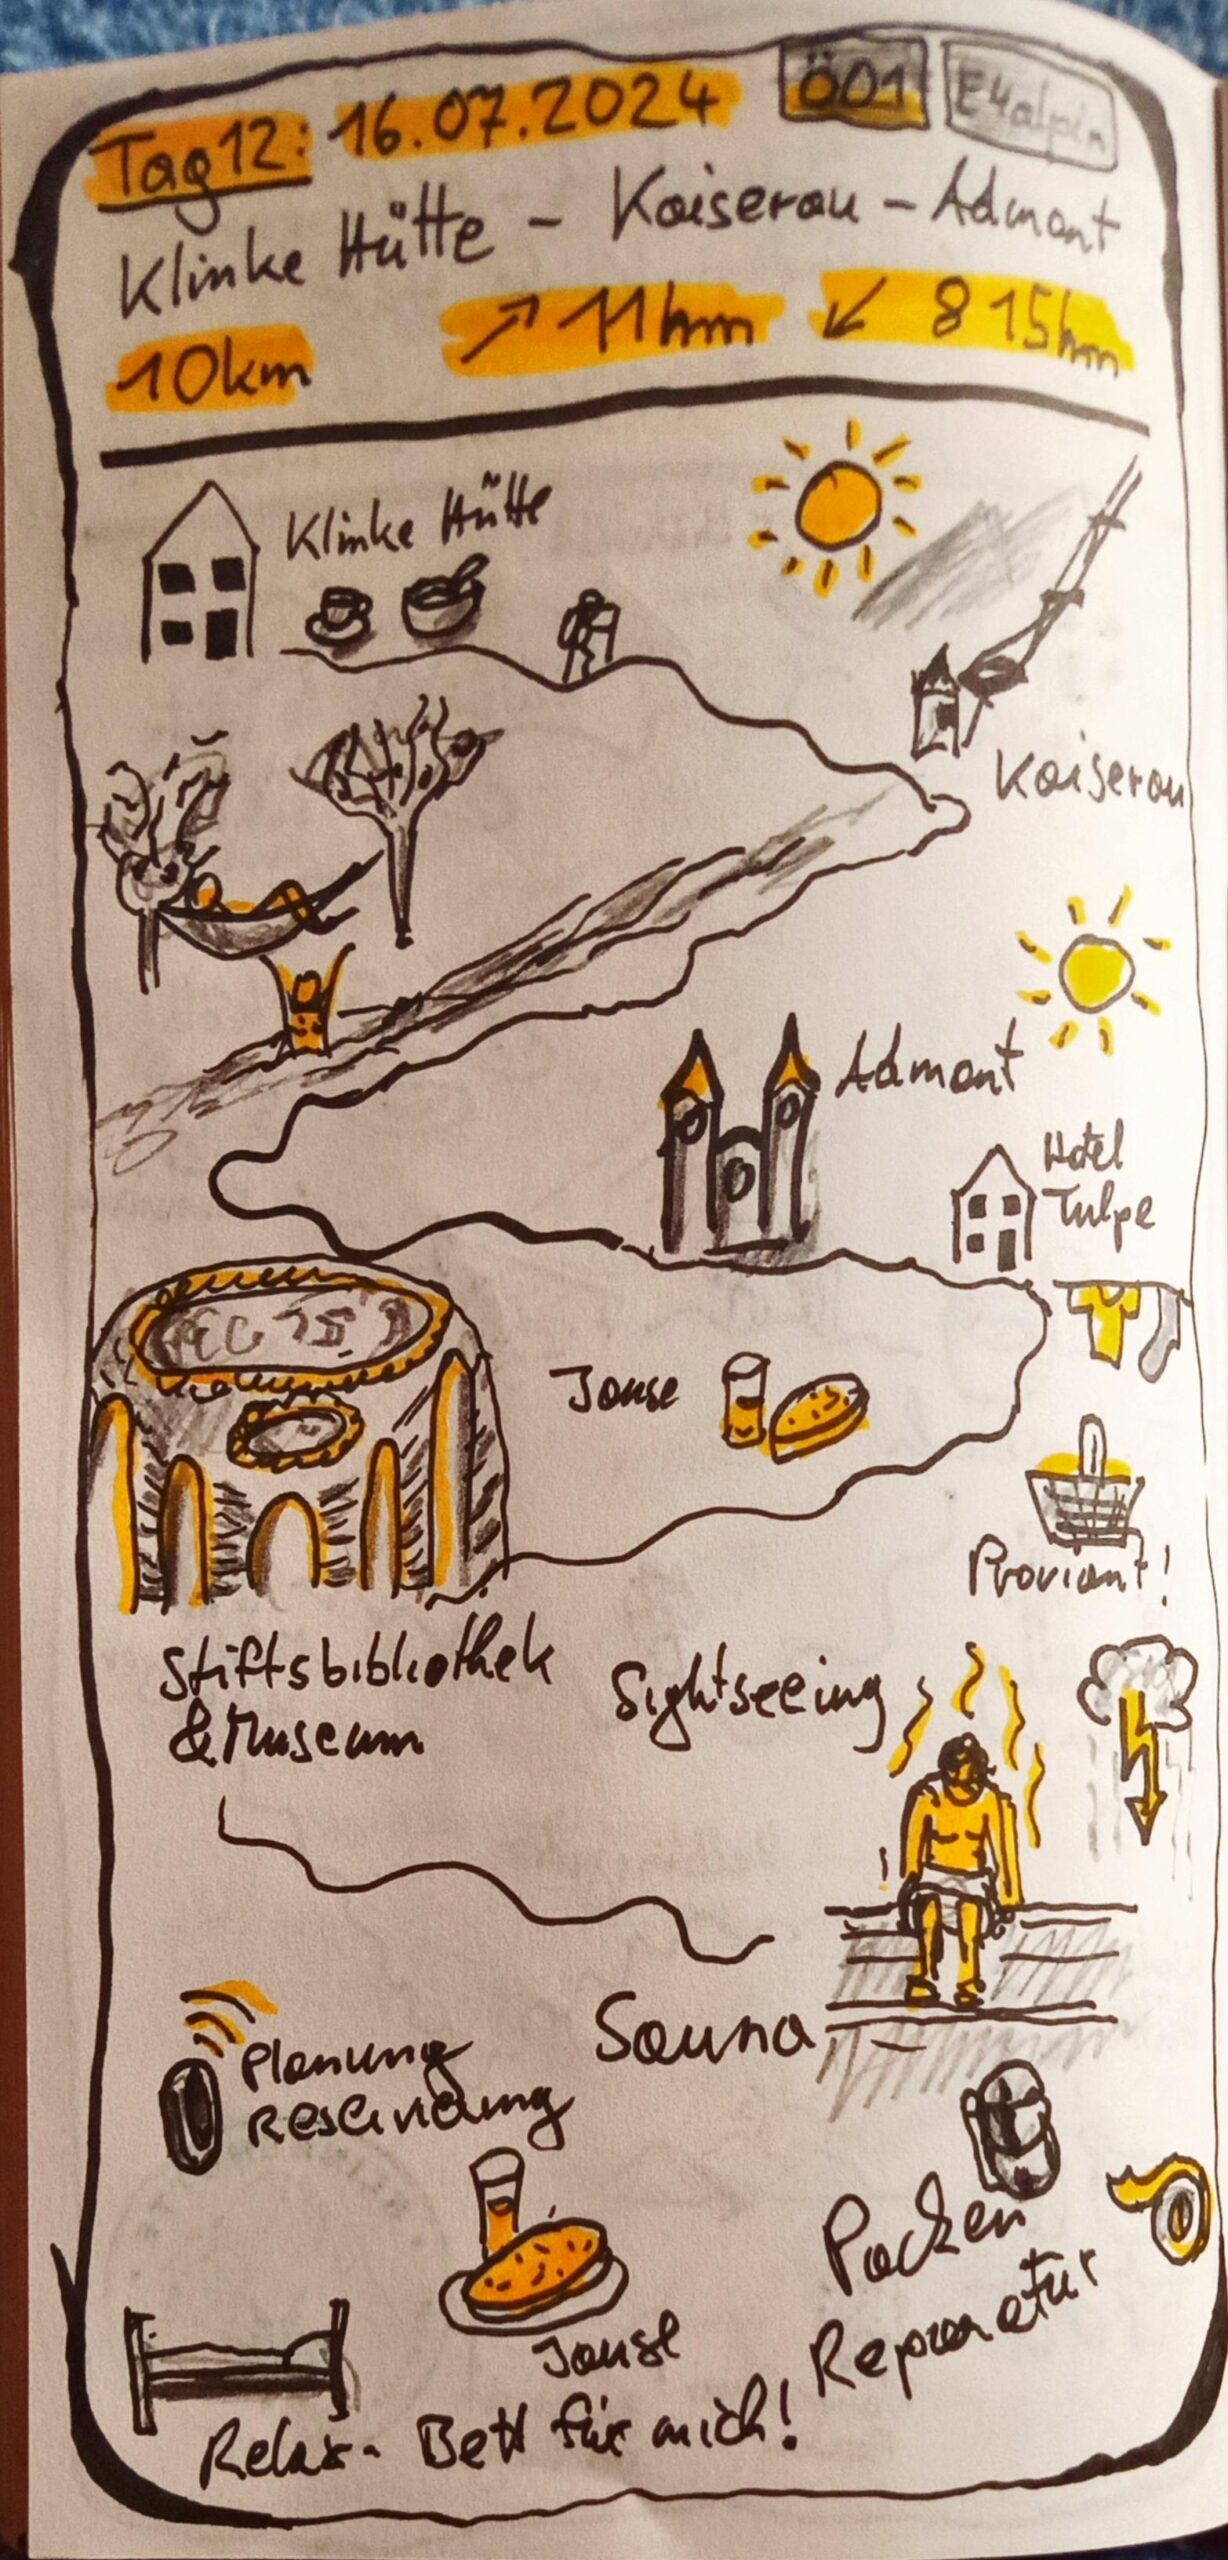 Tag 12: 16.07.2024 Ö01 E4alpin
Klinke Hütte - Kaiserau - Admont
10km ↗ 11hm ↙ 815hm
Klinke Hütte
Kaiserau
Admont
Hotel
Tulpe
Jause
Proviant!
Stiftsbibliothek
& Museum
Sightseeing
Sauna
Planung
Packen
Reparatur
Jause
Relax- Bett für mich!